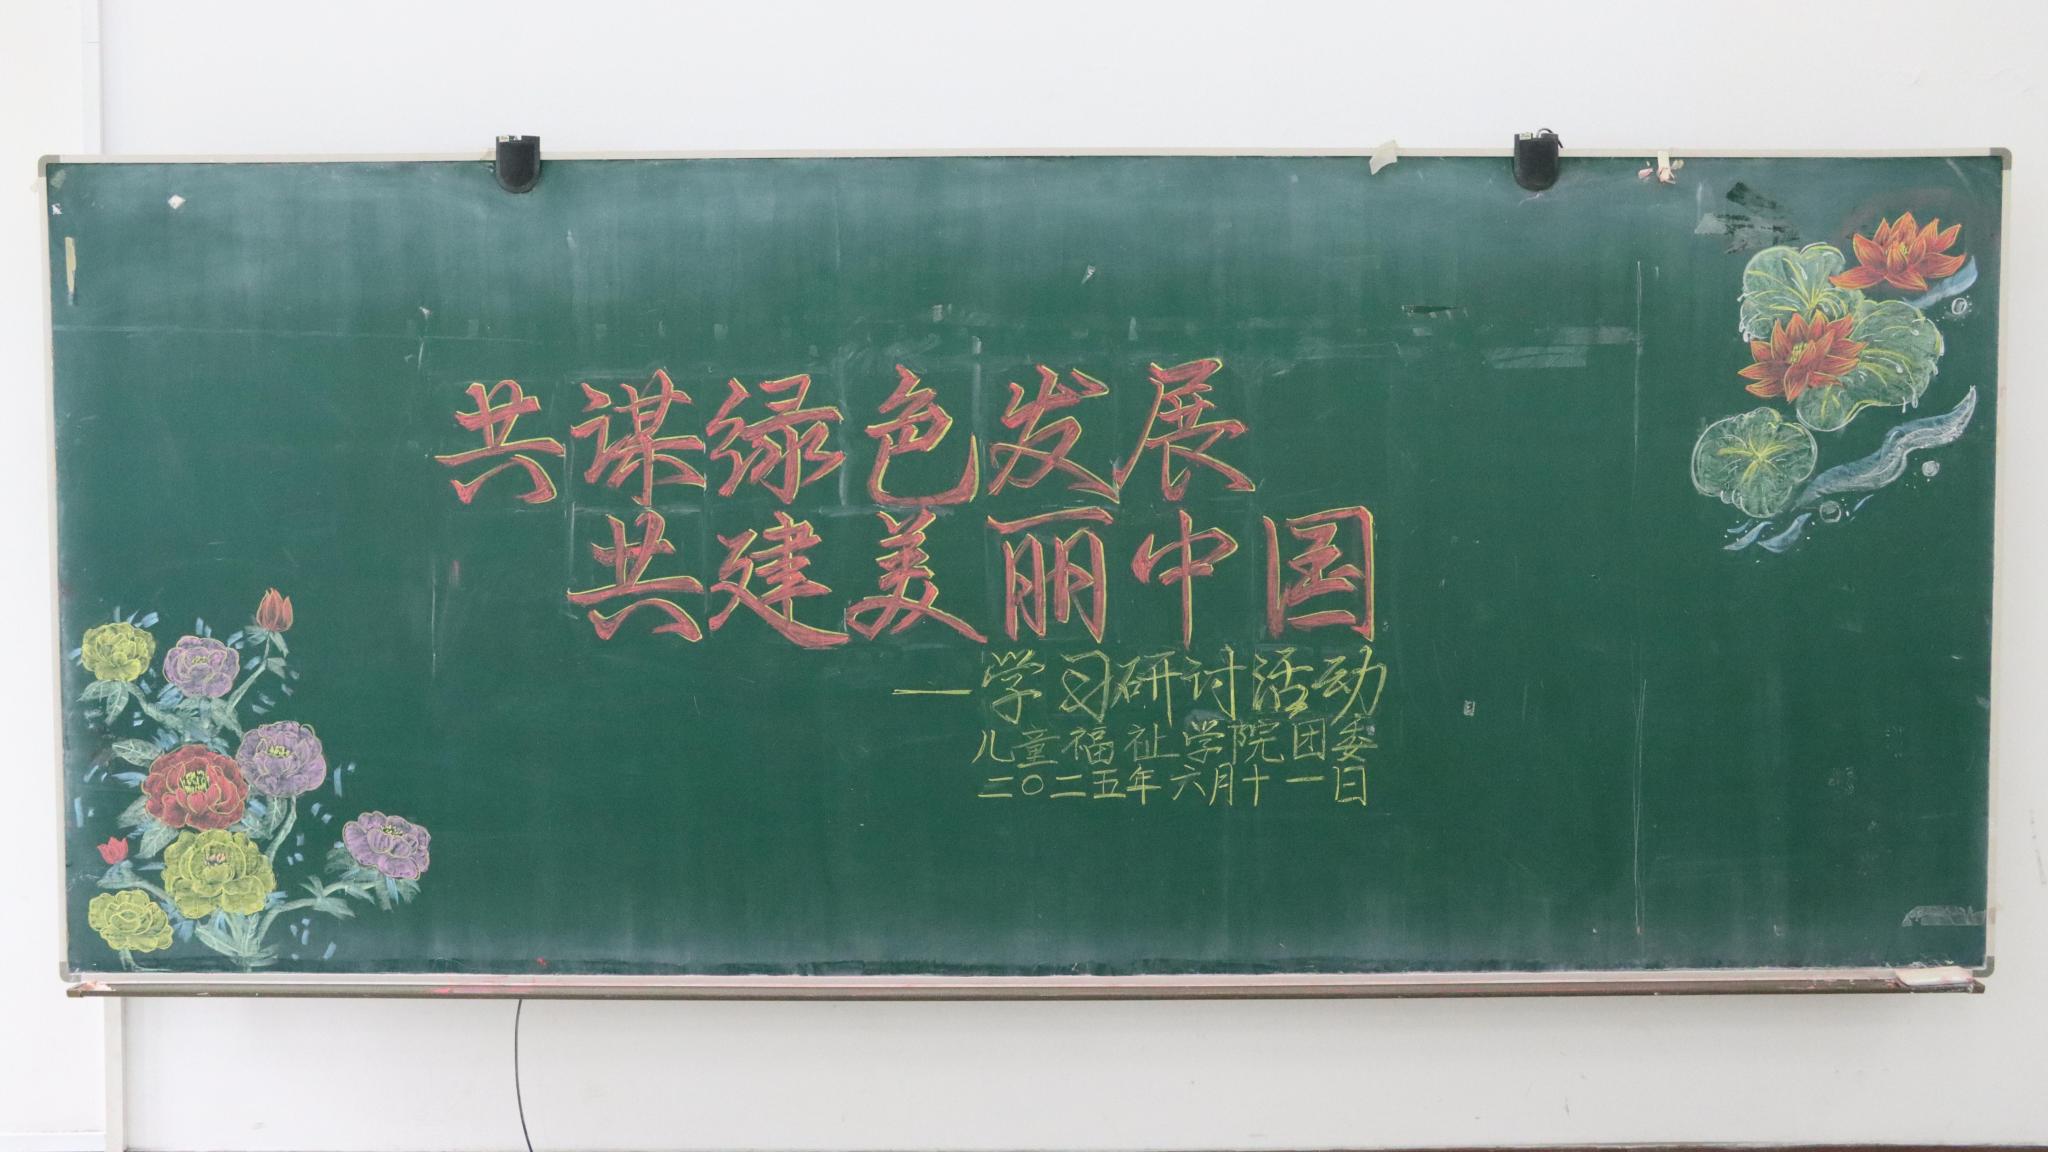 共谋绿色发展
共建美丽中国
—学习研讨活动
儿童福祉学院团委
二〇二五年六月十一日